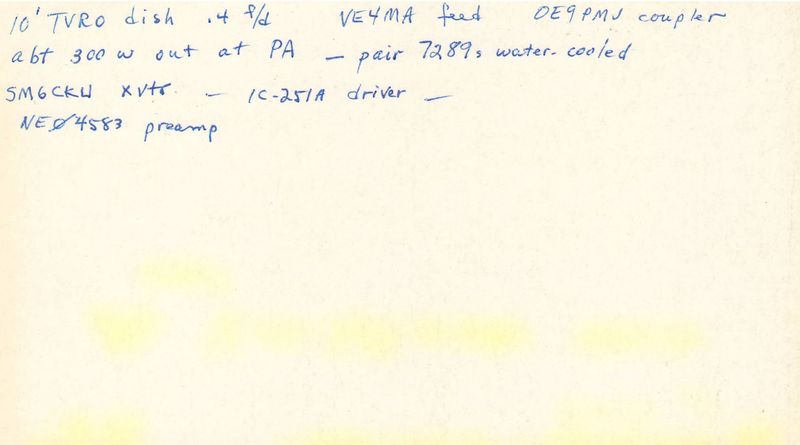 10' TVRO dish .4 f/d VE4MA feed OE9PMJ coupler
abt 300 w out at PA — pair 7289s water-cooled
SM6CKU xvtr — IC-251A driver —
NEØ4583 preamp